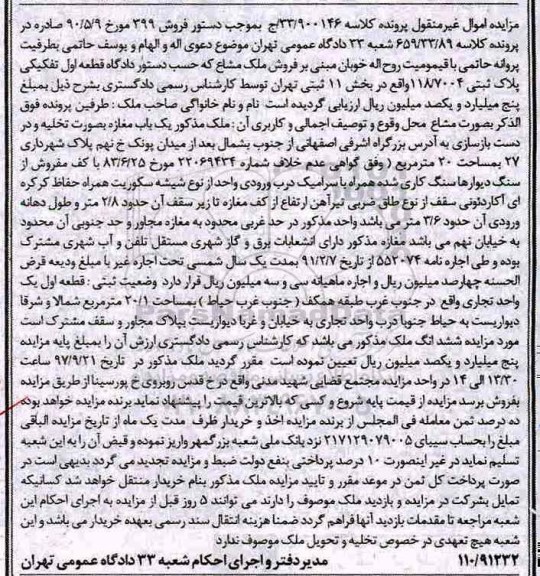 مزایده اموال غیرمنقول پرونده کلاسه ۳۳/۹۰۰۱۴۶/ج بموجب دستور فروش ۳۹۹ مورخ ۹۰/۵/۹ صادره در
پرونده کلاسه ۶۵۹/۳۳/۸۹ شعبه ۳۳ دادگاه عمومی تهران موضوع دعوی اله و الهام و یوسف حاتمی بطرفیت
پروانه حاتمی با قیمومیت روح اله خوبان مبنی بر فروش ملک مشاع که حسب دستور دادگاه قطعه اول تفکیکی
پلاک ثبتی ۱۱۸/۷۰۰۴ واقع در بخش ۱۱ ثبتی تهران توسط کارشناس رسمی دادگستری بشرح ذیل بمبلغ
پنج میلیارد و یکصد میلیون ریال ارزیابی گردیده است نام و نام خانواگی صاحب ملک : طرفین پرونده فوق
الذکر بصورت مشاع محل وقوع و توصیف اجمالی و کاربری آن : ملک مذکور یک باب مغازه بصورت تخلیه و در
دست بازسازی به آدرس بزرگراه اشرفی اصفهانی از جنوب بشمال بعد از میدان پونک خ نهم پلاک شهرداری
۲۷ بمساحت ۲۰ مترمربع ( وفق گواهی عدم خلاف شماره ۲۲۰۶۹۴۳۴ مورخ ۸۳/۶/۲۵ با کف مفروش از
سنگ دیوارها سنگ کاری شده همراه با سرامیک درب ورودی واحد از نوع شیشه سکوریت همراه حفاظ کرکره
ای آکاردئونی سقف از نوع طاق ضربی تیرآهن ارتفاع از کف مغازه تا زیر سقف آن حدود ۲/۸ متر و طول دهانه
ورودی آن حدود ۳/۶ متر می باشد واحد مذکور در حد غربی محدود به مغازه مجاور و حد جنوبی آن محدود
به خیابان نهم می باشد مغازه مذکور دارای انشعابات برق و گاز شهری مستقل تلفن و آب شهری مشترک
بوده و طی اجاره نامه ۵۵۲۰۷۴ از تاریخ ۹۱/۲/۷ بمدت یک سال شمسی تحت اجاره غیر با مبلغ ودیعه قرض
الحسنه چهارصد میلیون ریال و اجاره ماهیانه سی و سه میلیون ریال قرار دارد وضعیت ثبتی : قطعه اول یک
واحد تجاری واقع در جنوب غرب طبقه همکف ( جنوب غرب حیاط ) بمساحت ۲۰/۱ مترمربع شمالا و شرقا
دیواریست به حیاط جنوبا درب واحد تجاری به خیابان و غربا دیواریست بپلاک مجاور و سقف مشترک است
مورد مزایده ششد انگ ملک مذکور می باشد که کارشناس رسمی دادگستری ارزش آن را بمبلغ پایه مزایده
پنج میلیارد و یکصد میلیون ریال تعیین نموده است مقرر گردید ملک مذکور در تاریخ ۹۷/۹/۲۱ ساعت
۱۳/۳۰ الی ۱۴ در واحد مزایده مجتمع قضایی شهید مدنی واقع در خ قدس روبروی خ پورسینا از طریق مزایده
بفروش برسد مزایده از قیمت پایه شروع و کسی که بالاترین قیمت را پیشنهاد نماید برنده مزایده خواهد بود
ده درصد ثمن معامله فی المجلس از برنده مزایده اخذ و خریدار ظرف مدت یک ماه از تاریخ مزایده الباقی
مبلغ را بحساب سیبای ۲۱۷۱۲۹۰۷۹۰۰۵ نزد بانک ملی شعبه بزرگمهر واریز نموده و قبض آن را به این شعبه
تسلیم نماید در غیر اینصورت ۱۰ درصد پرداختی بنفع دولت ضبط و مزایده تجدید می گردد بدیهی است در
صورت پرداخت کل ثمن در موعد مقرر و تایید مزایده ملک مذکور بنام خریدار منتقل خواهد شد کسانیکه
تمایل بشرکت در مزایده و بازدید ملک موصوف را دارند می توانند ۵ روز قبل از مزایده به اجرای احکام این
شعبه مراجعه تا مقدمات بازدید آنها فراهم گردد ضمنا هزینه انتقال سند رسمی بعهده خریدار می باشد و این
شعبه هیچ تعهدی در خصوص تخلیه و تحویل ملک موصوف ندارد
۱۱۰/۹۱۲۳۲ مدیر دفتر و اجرای احکام شعبه ۳۳ دادگاه عمومی تهران